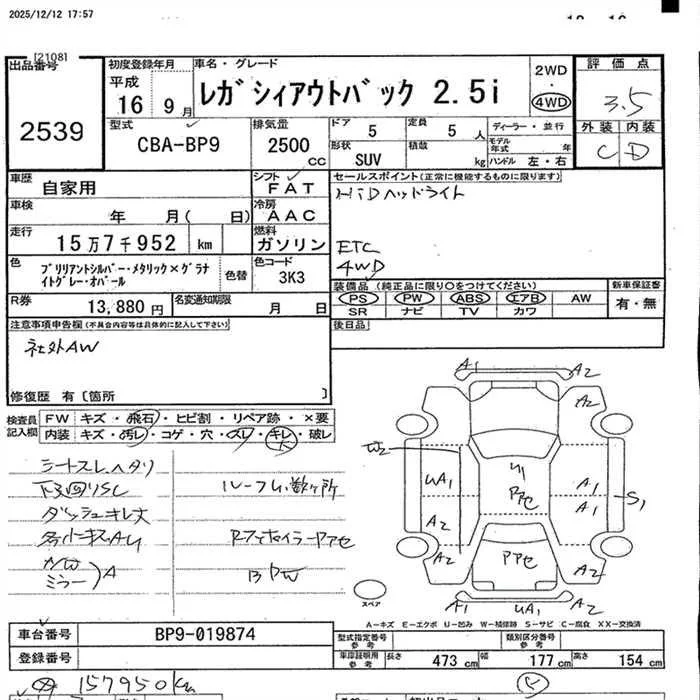 2025/12/12 17:57
[2108]
出品番号
2539
初度登録年月
平成
16 9月
車名・グレード
レガシィアウトバック 2.5i
2WD
・
4WD
評価点
3.5
外装 内装
C D
型式
CBA-BP9
排気量
2500
CC
ドア 5
定員 5 人
形状
SUV
積載
kg
ディーラー・並行
モデル年式 年
ハンドル 左・右
車歴
自家用
シフト
FAT
車検
年 月( 日)
冷房
AAC
走行
15万7千952 km
燃料
ガソリン
色
ブリリアントシルバー・メタリック×グラナイトグレー・オパール
色替
色コード
3K3
R券
13,880円
名変通知期限
月 日
セールスポイント(正常に機能するものに限ります)
HiDヘッドライト
ETC
4WD
装備品(純正品に限り○をつけてください)
PS PW ABS エアB AW
SR ナビ TV カワ
新車保証書
有・無
後日品
注意事項申告欄(不具合内容等は具体的に記入して下さい)
社外AW
修復歴 有〔箇所 〕
検査員記入欄
FW キズ・飛石・ヒビ割・リペア跡・×要
内装 キズ・汚レ・コゲ・穴・スレ・キレ・破レ
シートスレヘタリ
ダッシュキレ大
ミラー)A
A1
A2
A2
W2
UA1
A2
A2
A1
A1
S1
A2
A1
UA1
A2
スペア
A-キズ E-エクボ U-凹み W-補修跡 S-サビ C-腐食 XX-交換済
車台番号
BP9-019874
登録番号
型式指定番号
参考
類別区分番号
参考
車庫証明用
参考
長さ 473 cm
幅 177 cm
高さ 154 cm
157950km